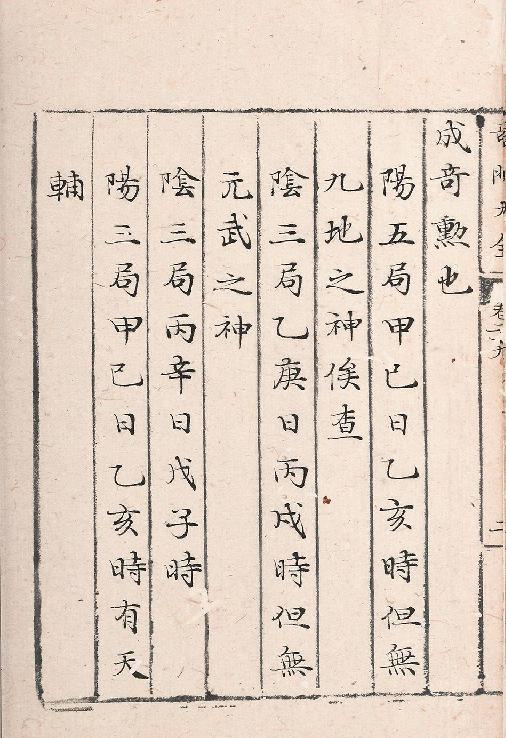 成竒勲也
陽五局甲巳日乙亥時但無
九地之神俟查
陰三局乙庚日丙戌時但無
元武之神
陰三局丙辛日戊子時
陽三局甲巳日乙亥時有天
輔